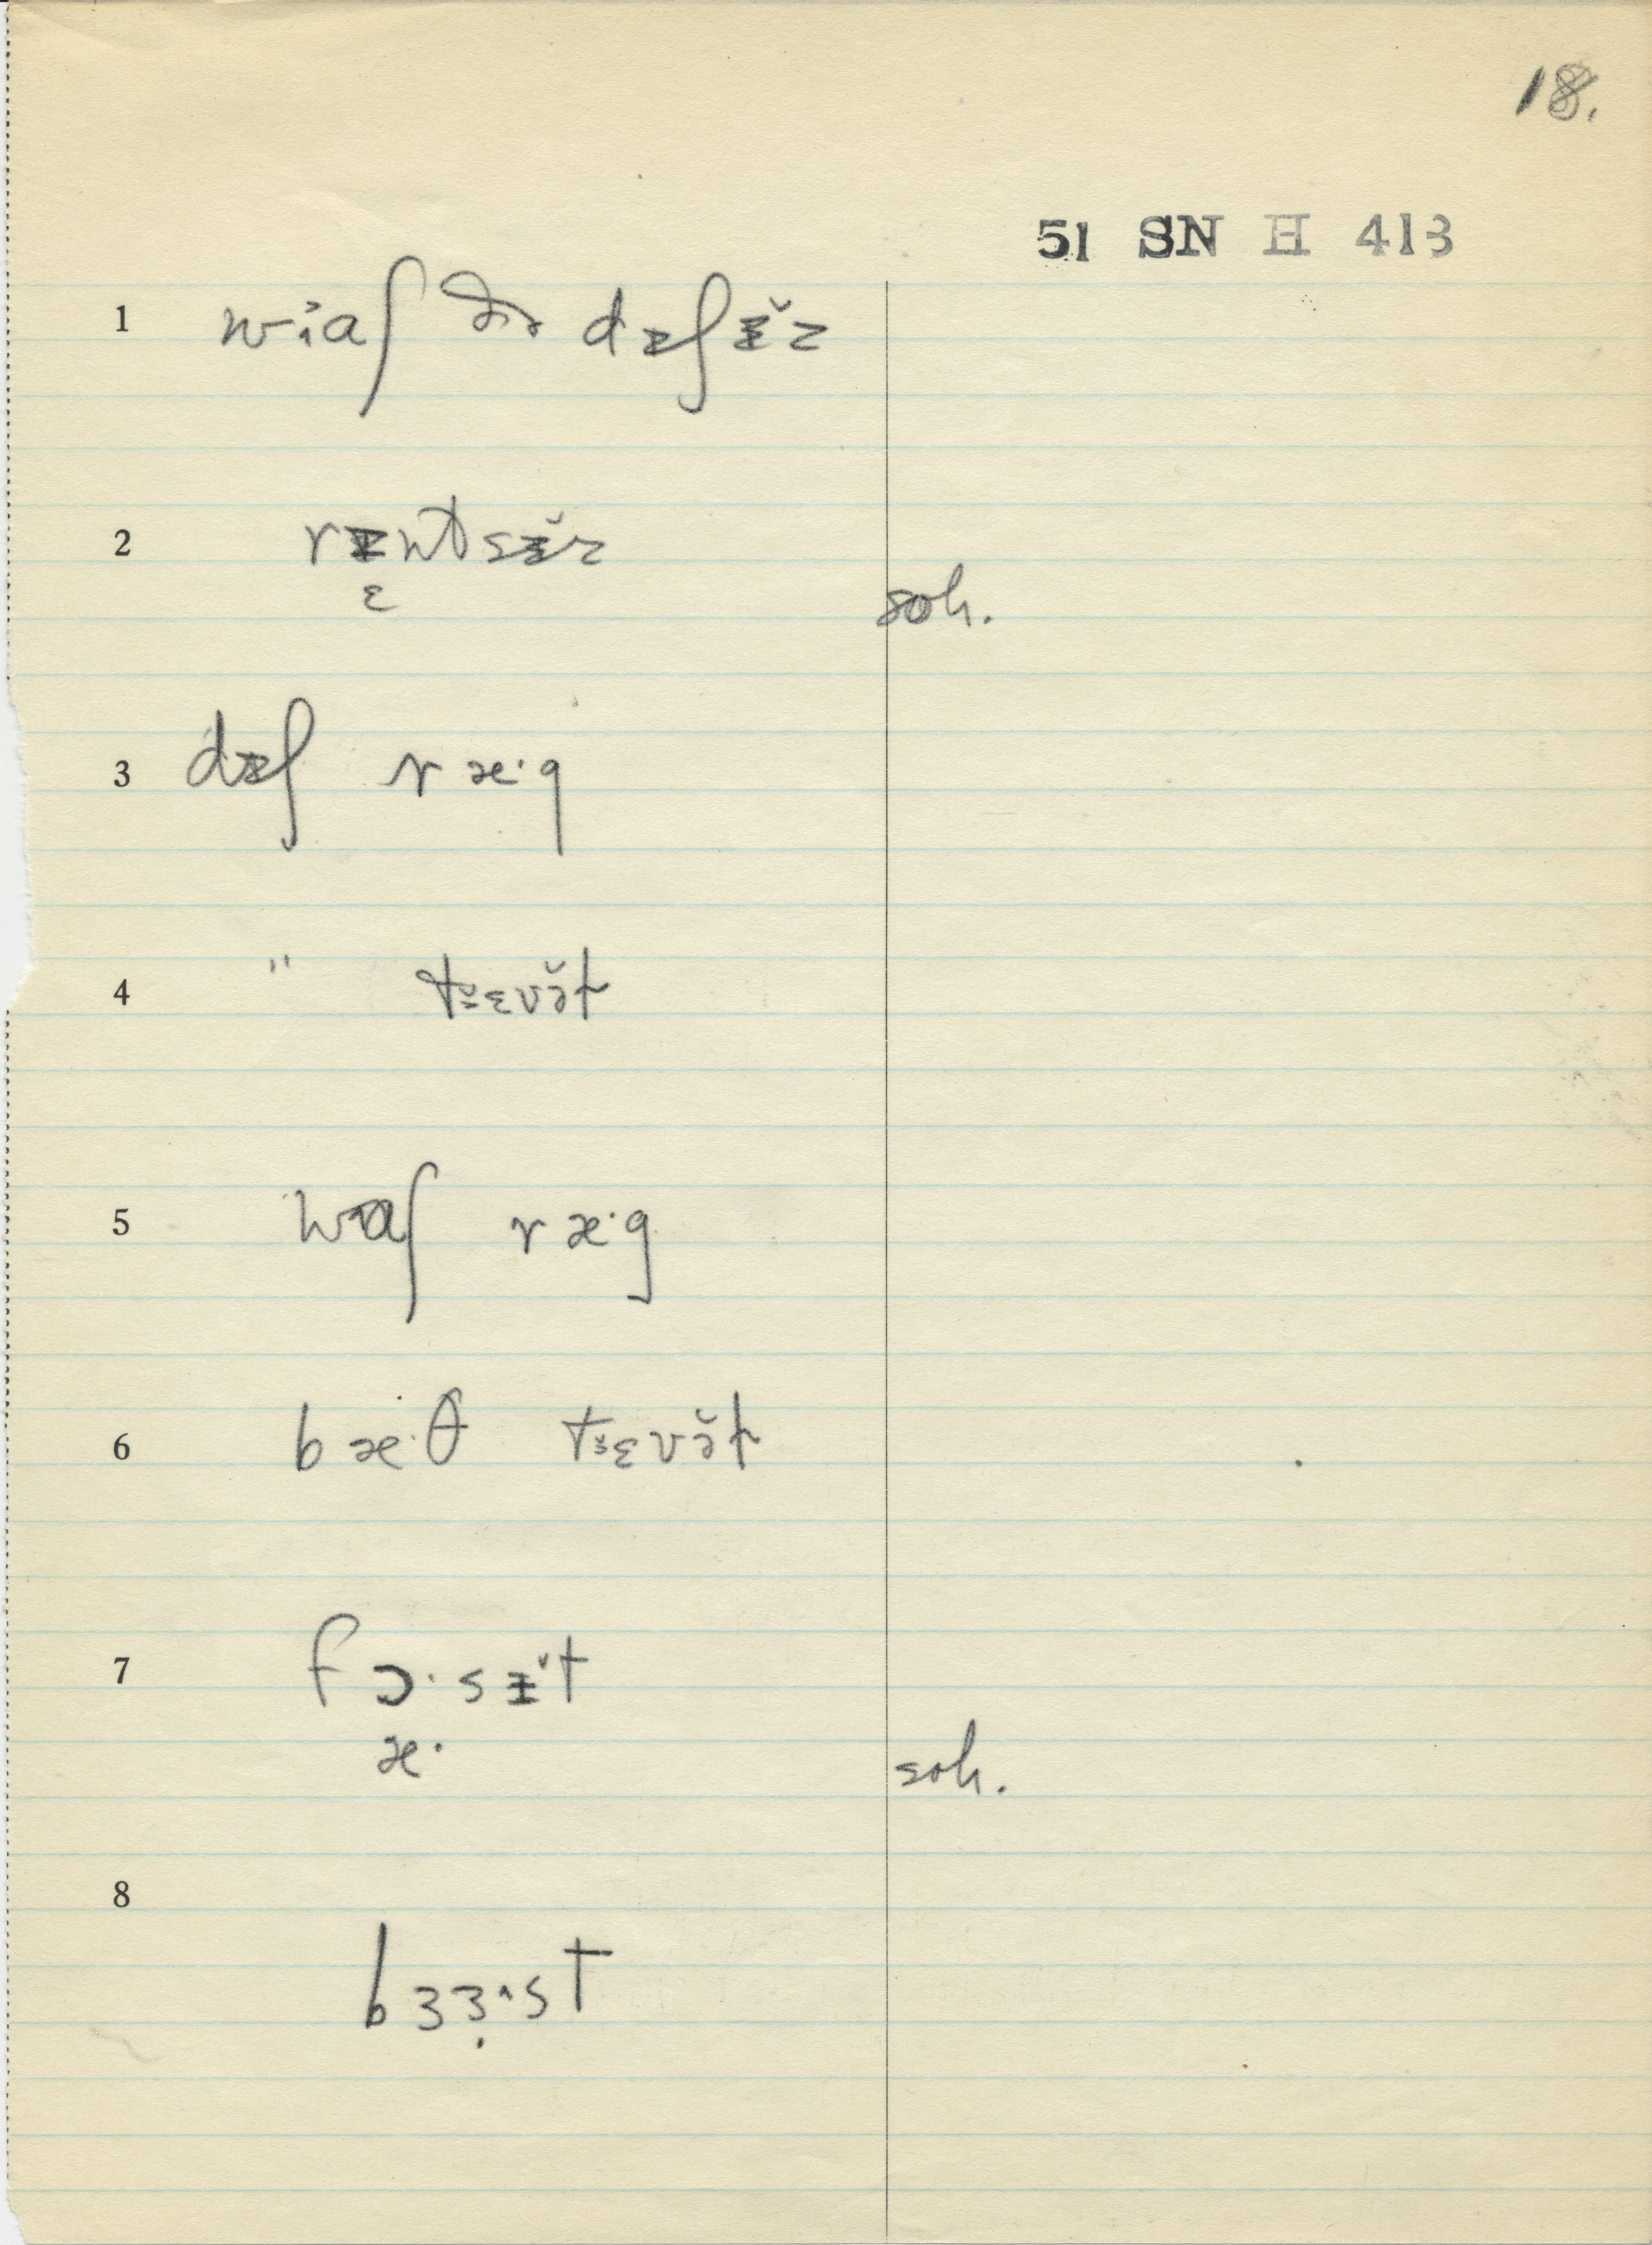 18.
51 SN H 413
1 wɨaʃ ðə dɨʃɨ̆z
2 rɨntsɨ̆z
ɛ
soh.
3 dɨʃ ræ·g
4 " tɨ̆ɛvə̆t
5 wɑʃ ræ·g
6 bæ·θ tɨ̆ɛvə̆t
7 fɔ·sɨ̆t
æ·
soh.
8
bɜɜ̣·st